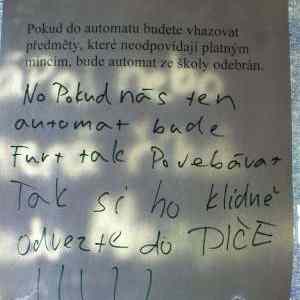 Pokud do automatu budete vhazovat
předměty, které neodpovídají platným
mincím, bude automat ze školy odebrán.
No Pokud nás ten
automat bude
Furt tak Pojebávat
Tak si ho klidně
odvezte do PIČE
!!!!!